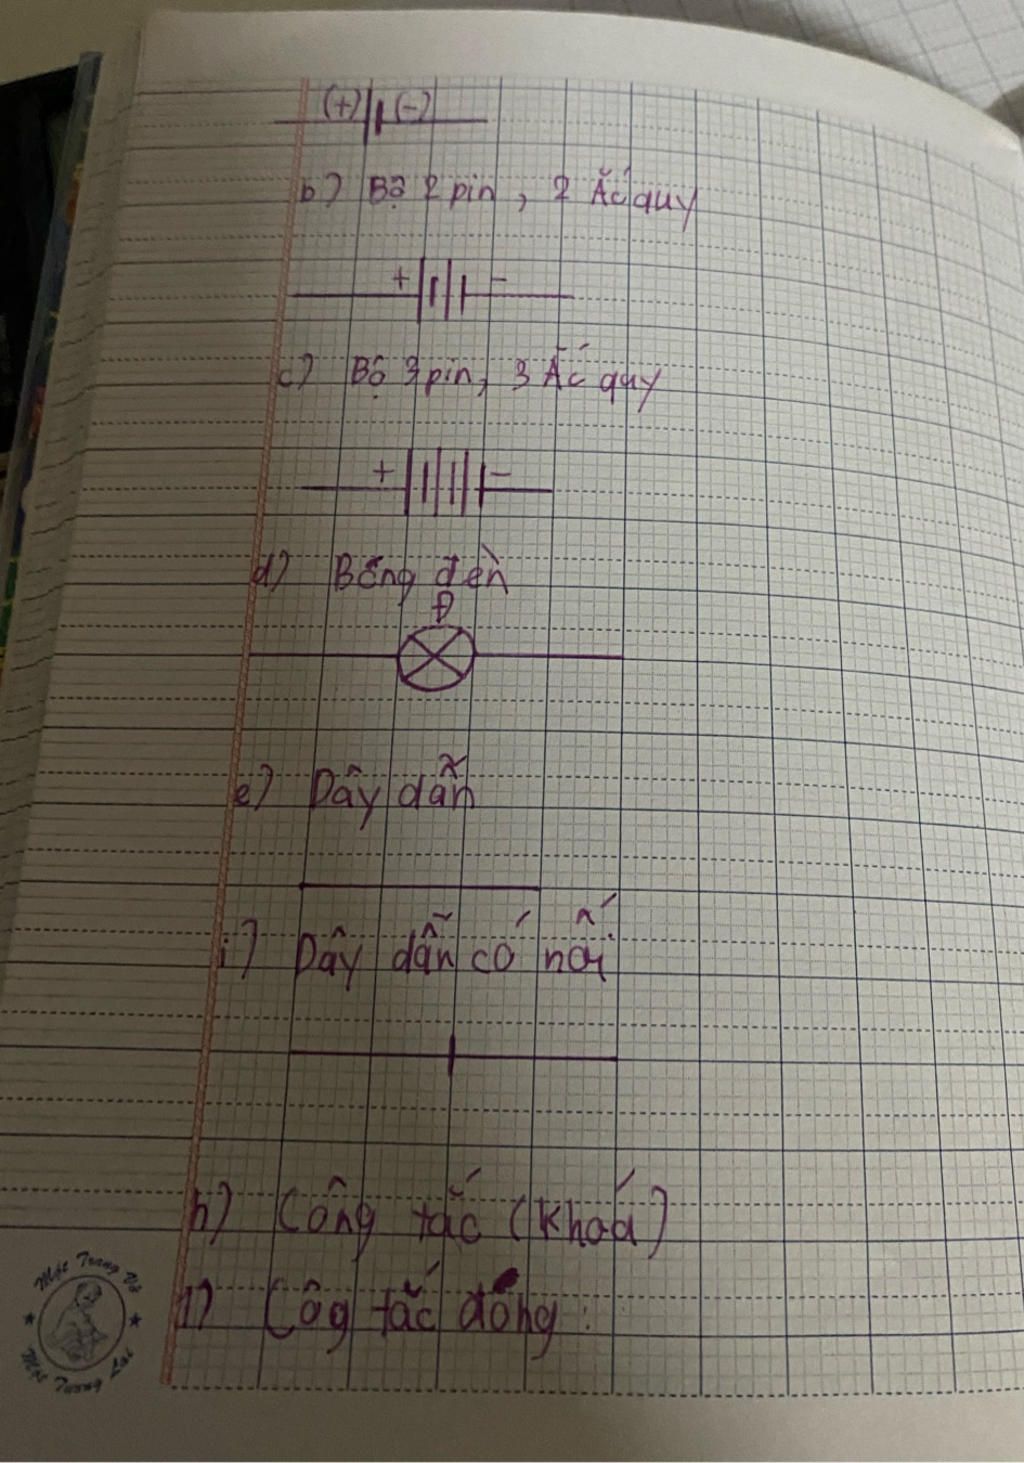 (+) (-)
b) Bộ 2 pin, 2 Ắc quy
+ -
c) Bộ 3 pin, 3 Ắc quy
+ -
d) Bóng đèn
Đ
e) Dây dẫn
i) Dây dẫn có nối
h) Công tắc (khoá)
1) Côg tắc đóng:
Một Trang Vở
Một Tương Lai